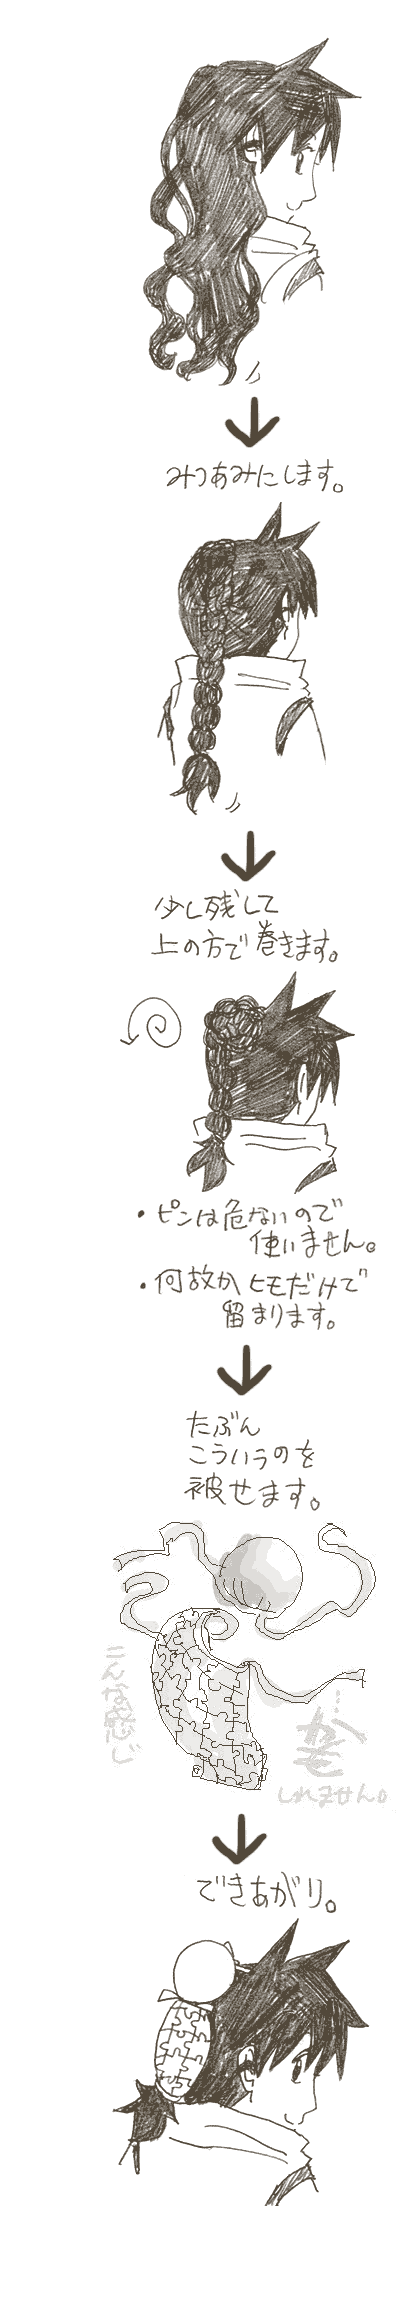 みつあみにします。
少し残して
上の方で巻きます。
・ピンは危ないので
使いません。
・何故かヒモだけで
留まります。
たぶん
こういうのを
被せます。
こんな感じ
かも
しれません。
できあがり。